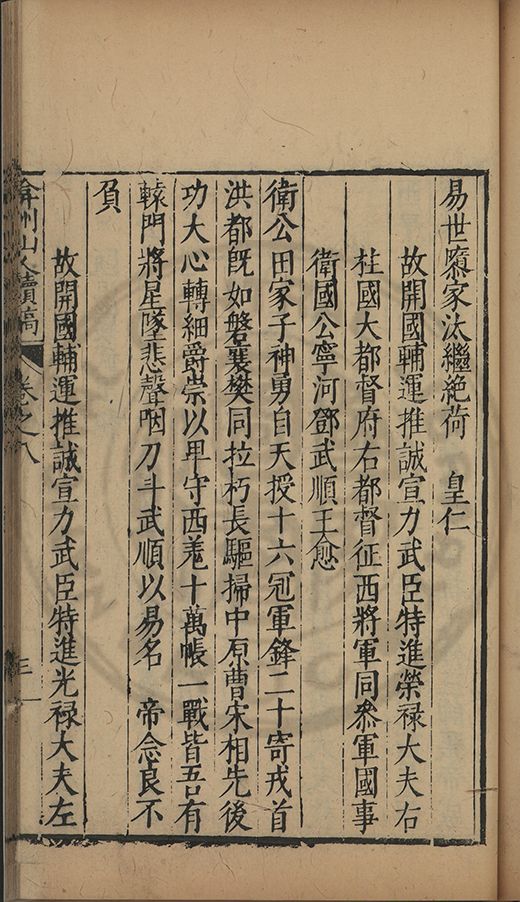 易世隳家汰繼絶荷　皇仁
故開國輔運推誠宣力武臣特進榮禄大夫右
柱國大都督府右都督征西將軍同叅軍國事
衛國公寧河鄧武順王愈
衛公田家子神勇自天授十六冠軍鋒二十寄戎首
洪都旣如磐襄樊同拉朽長驅掃中原曹宋相先後
功大心轉細爵崇以卑守西羗十萬帳一戰皆吾有
轅門將星墜悲聲咽刀斗武順以易名　帝念良不
負
故開國輔運推誠宣力武臣特進光禄大夫左
弇州山人續稿　卷之八　三